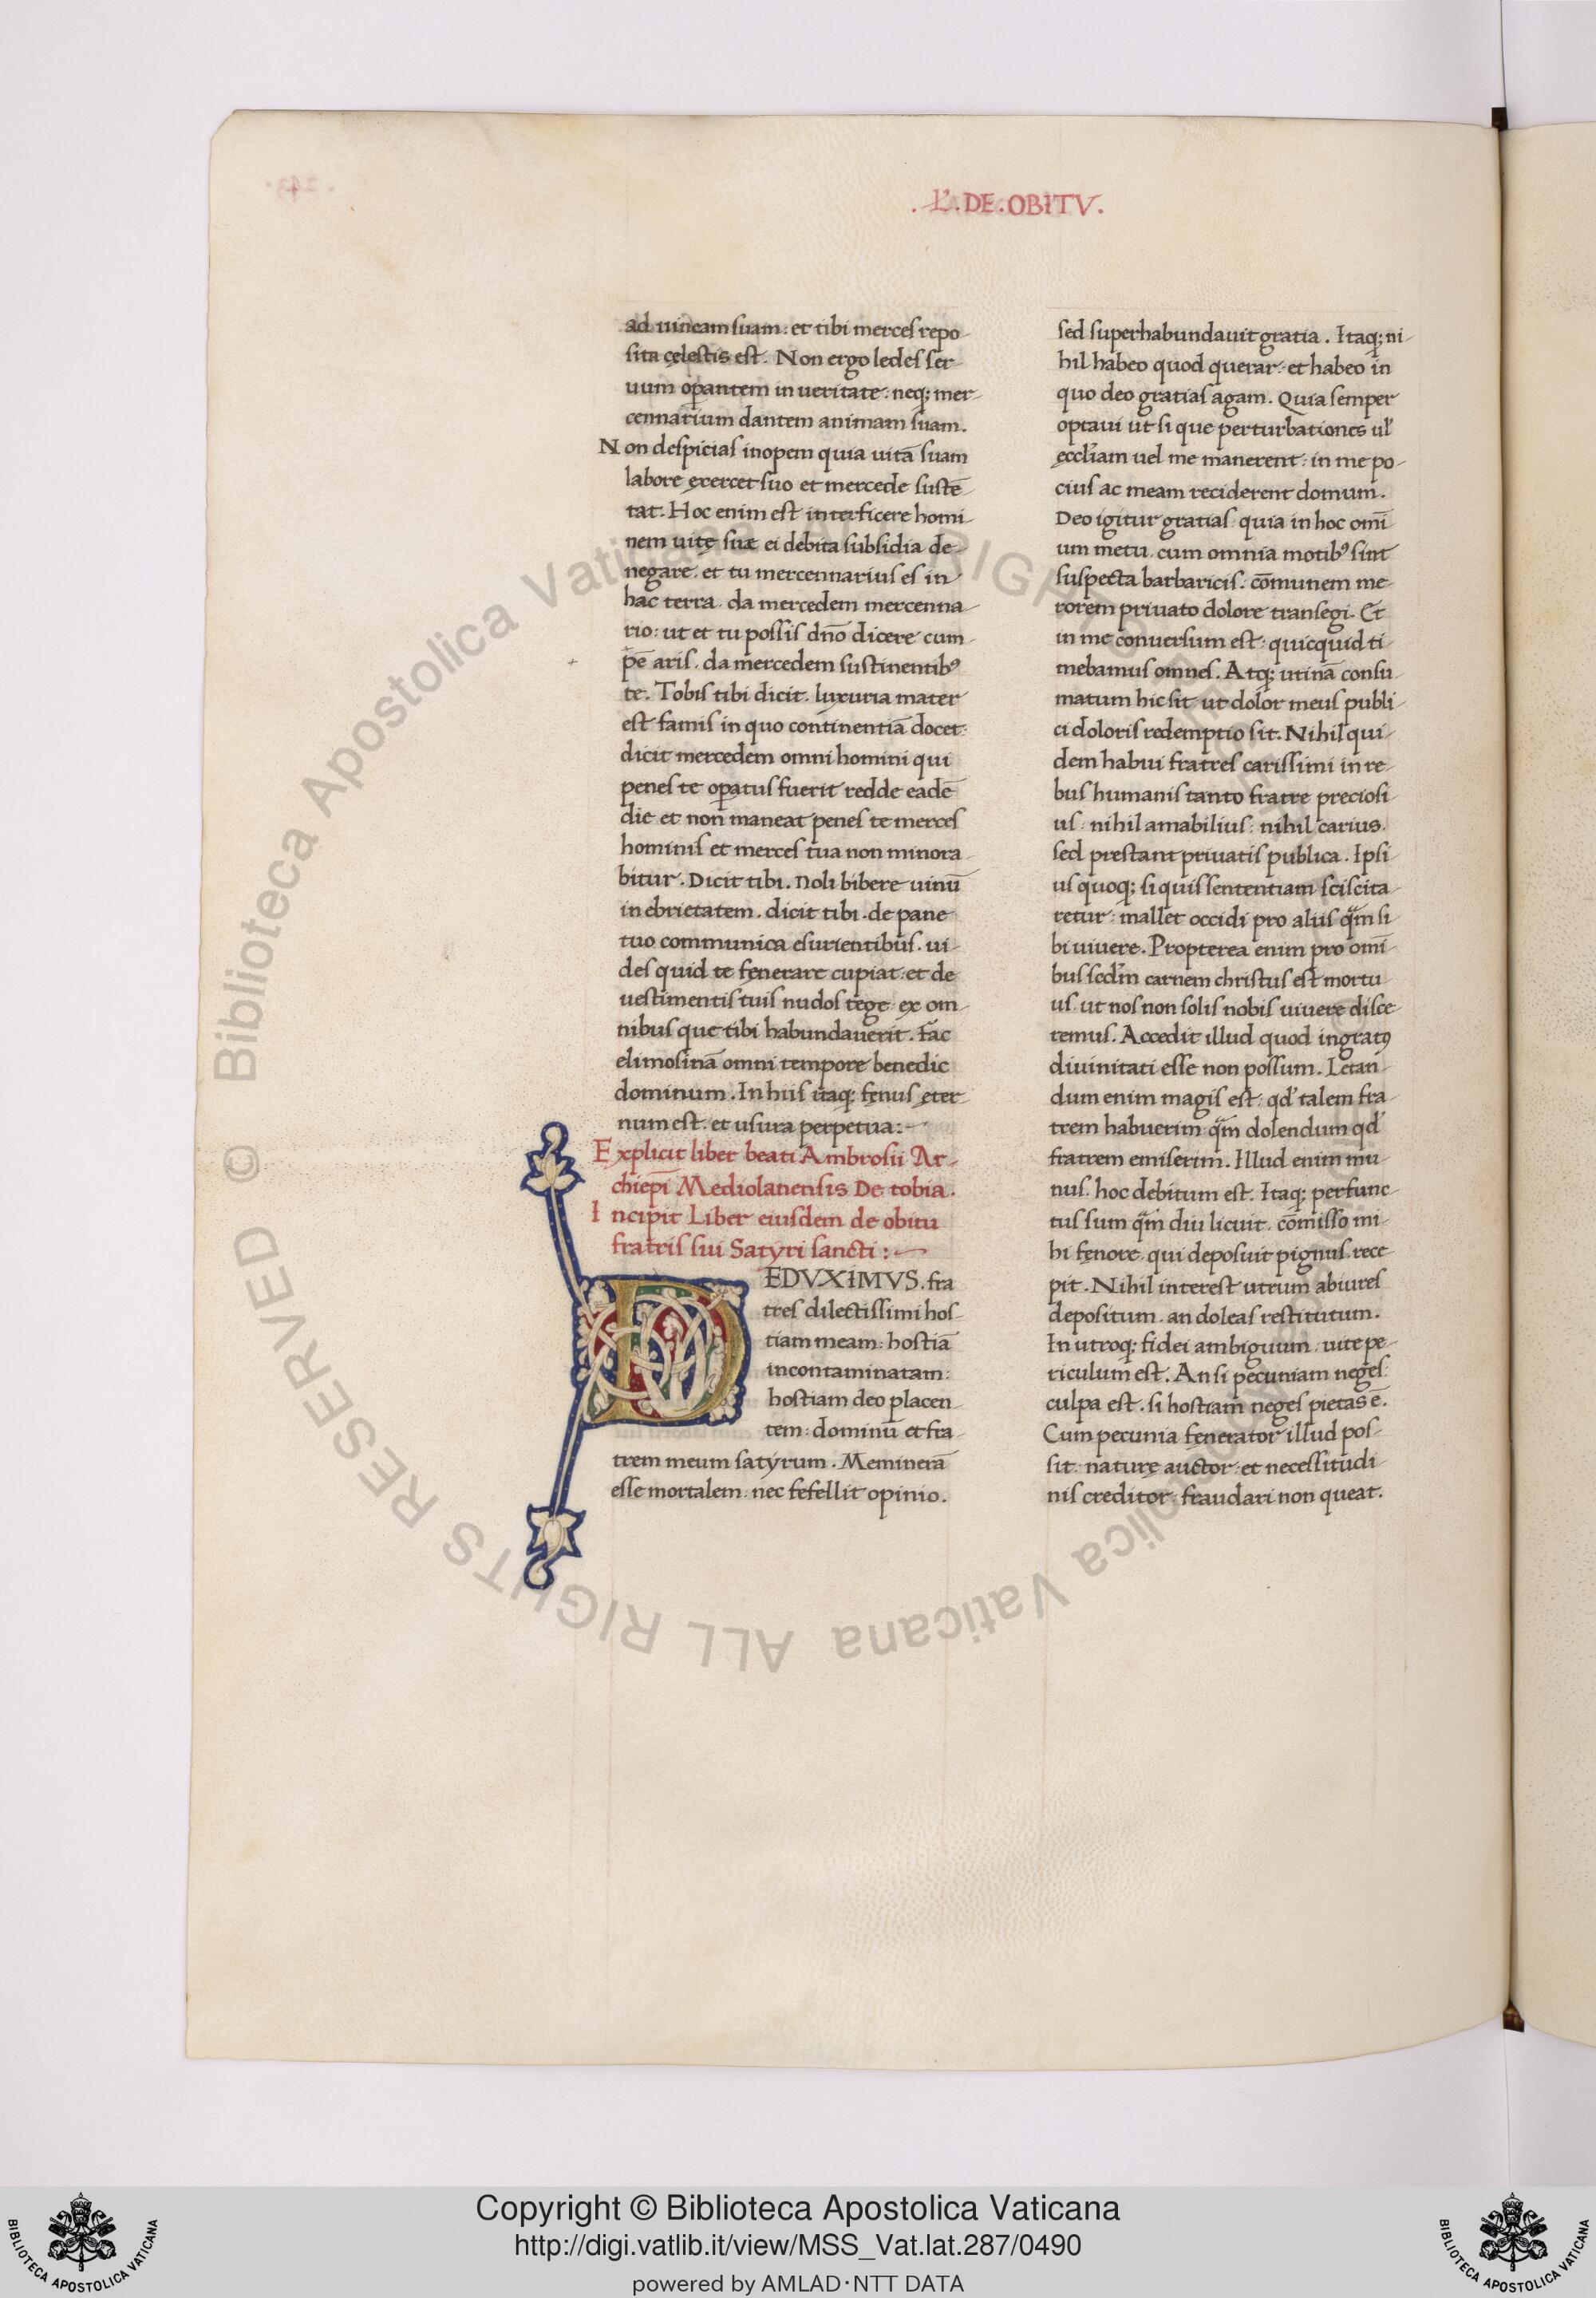 .L'. DE. OBITV.
ad uineam suam: et tibi merces repo
sita cęlestis est. Non ergo ledes ser
uum opantem in ueritate: neq; mer
cennarium dantem animam suam.
Non despicias inopem quia uitā suam
labore exercet suo et mercede sustē
tat. Hoc enim est interficere homi
nem uitę suæ ei debita subsidia de
negare. et tu mercennarius es in
hac terra. da mercedem mercenna
rio: ut et tu possis dn̄o dicere cum
pē aris. da mercedem sustinentib9
te. Tobis tibi dicit. luxuria mater
est famis in quo continentiā docet:
dicit mercedem omni homini qui
penes te opatus fuerit redde eadē
die et non maneat penes te merces
hominis et merces tua non minora
bitur. Dicit tibi. Noli bibere uinū
in ebrietatem. dicit tibi. de pane
tuo communica esurientibus. ui
des quid te fęnerare cupiat: et de
uestimentis tuis nudos tege: ex om
nibus que tibi habundauerit. Fac
elimosinā omni tempore benedic
dominum. In hiis itaq; fęnus ęter
num est. et usura perpetua:-
Explicit liber beati Ambrosii Ar
chiepī Mediolanensis De tobia.
Incipit Liber eiusdem de obitu
fratris sui Satyri sancti:-
DEDVXIMVS. fra
tres dilectissimi hos
tiam meam: hostiā
incontaminatam:
hostiam deo placen
tem: dominū et fra
trem meum satyrum. Meminerā
esse mortalem: nec fefellit opinio.
sed superhabundauit gratia. Itaq; ni
hil habeo quod querar: et habeo in
quo deo gratias agam. Quia semper
optaui ut si que perturbationes ul'
eccl'iam uel me manerent: in me po
cius ac meam reciderent domum.
Deo igitur gratias: quia in hoc omī
um metu. cum omnia motib9 sint
suspecta barbaricis: cōmunem me
rorem priuato dolore transegi. Et
in me conuersum est: quicquid ti
mebamus omnes. Atq; utinā consu
matum hic sit ut dolor meus publi
ci doloris redemptio sit. Nihil qui
dem habui fratres carissimi in re
bus humanis tanto fratre preciosi
us: nihil amabilius: nihil carius.
sed prestant priuatis publica. Ipsi
us quoq; si quis sententiam sciscita
retur: mallet occidi pro aliis qm̄ si
bi uiuere. Propterea enim pro omī
bus scd'm carnem christus est mortu
us. ut nos non solis nobis uiuere disce
remus. Accedit illud quod ingrat9
diuinitati esse non possum. Letan
dum enim magis est: qd' talem fra
trem habuerim qm̄ dolendum qd'
fratrem emiserim. Illud enim mu
nus. hoc debitum est. Itaq; perfunc
tus sum qm̄ diu licuit. cōmisso mi
hi fęnore. qui deposuit pignus. rece
pit. Nihil interest utrum abiures
depositum. an doleas restitutum.
In utroq; fidei ambiguum. uite pe
riculum est. An si pecuniam neges:
culpa est. si hostiam neges pietas ē.
Cum pecunia fęnerator illud pos
sit: naturę auctor: et necessitudi
nis creditor: fraudari non queat.
© Biblioteca Apostolica Vaticana ALL RIGHTS RESERVED
Copyright © Biblioteca Apostolica Vaticana
http://digi.vatlib.it/view/MSS_Vat.lat.287/0490
powered by AMLAD·NTT DATA
BIBLIOTECA APOSTOLICA VATICANA
BIBLIOTECA APOSTOLICA VATICANA